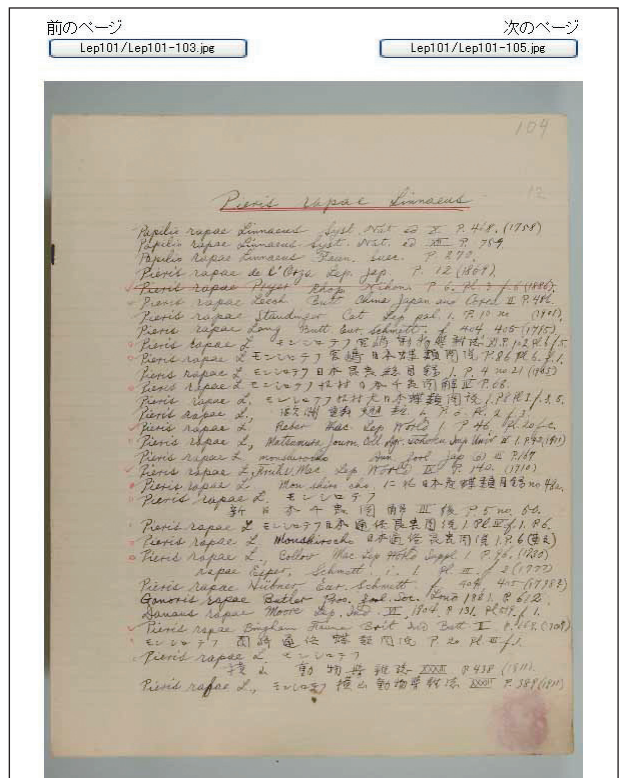 前のページ 次のページ
Lep101/Lep101-103.jpg Lep101/Lep101-105.jpg
104
12
Pieris rapae Linnaeus
Papilio rapae Linnaeus Syst. Nat. ed X. P. 468. (1758)
Papilio rapae Linnaeus Syst. Nat. ed XII P. 759
Papilio rapae Linnaeus Faun. Suec. P. 270.
Pieris rapae de l'Orza Lep. Jap. P. 12 (1869).
Pieris rapae Pryer Rhop. Nihon. P. 6. Pl. 3 f. 6 (1886).
Pieris rapae Leech Butt. China Japan and Corea II P. 456.
Pieris rapae Staudinger Cat Lep pal. 1. P. 10 no (1901).
Pieris rapae Butt Eur. Schmett. f. 404 405 (1795)
Pieris rapae L モンシロテフ 宮嶋 動物學雜誌
Pieris rapae L. モンシロテフ 宮嶋 日本蝶類図説 P. 86 Pl. 6. f. 1.
Pieris rapae L モンシロテフ 日本昆虫総目録 1. P. 4 no 21 (1905)
Pieris rapae L モンシロテフ 松村 日本千虫図解 IV P. 68.
Pieris rapae L. モンシロテフ 松村 大日本蝶類図説
Pieris rapae L.
Pieris rapae L, Röber Mac. Lep World 1. P. 46
Pieris rapae L, Matsumura Journ. Coll. Agr. Tohoku Imp Univ
Pieris rapae L monshirocho Ann. Zool Jap P. 167
Pieris rapae L, Mac. Lep World IX P. 140. (1910)
Pieris rapae L. Mon shiro cho. 日本産蝶類目録 no. 48a.
Pieris rapae L. モンシロテフ
新日本千虫図解 III 後 P. 5 no. 60.
Pieris rapae L モンシロテフ 日本通俗昆虫図説 1. Pl II f. 1. P. 6.
Pieris rapae L Monshirocho 日本通俗昆虫図説 1. P. 6
Pieris rapae L., Mac Lep World Suppl. 1 P. 96. (1930)
rapae Esper. Schmett. 1. 1. Pl f. 2 (1777)
Pieris rapae Hübner Eur. Schmett. f. 404, 405
Ganoris rapae Butler Proc. Zool. Soc. Lond 1881. P. 612.
Danaus rapae Moore Lep. Ind. VI 1904. P 131. Pl 519. f. 1.
Pieris rapae Bingham Fauna Brit Ind Butt. II P. 169. (1907)
モンシロテフ 岡崎 通俗蝶類図説 P. 20 Pl III f. 1.
Pieris rapae L. モンシロテフ
横山 動物学雑誌 XXIII P. 438 (1911).
Pieris rapae L., モンシロテフ 横山 動物学雑誌 XXIII P. 389 (1911)